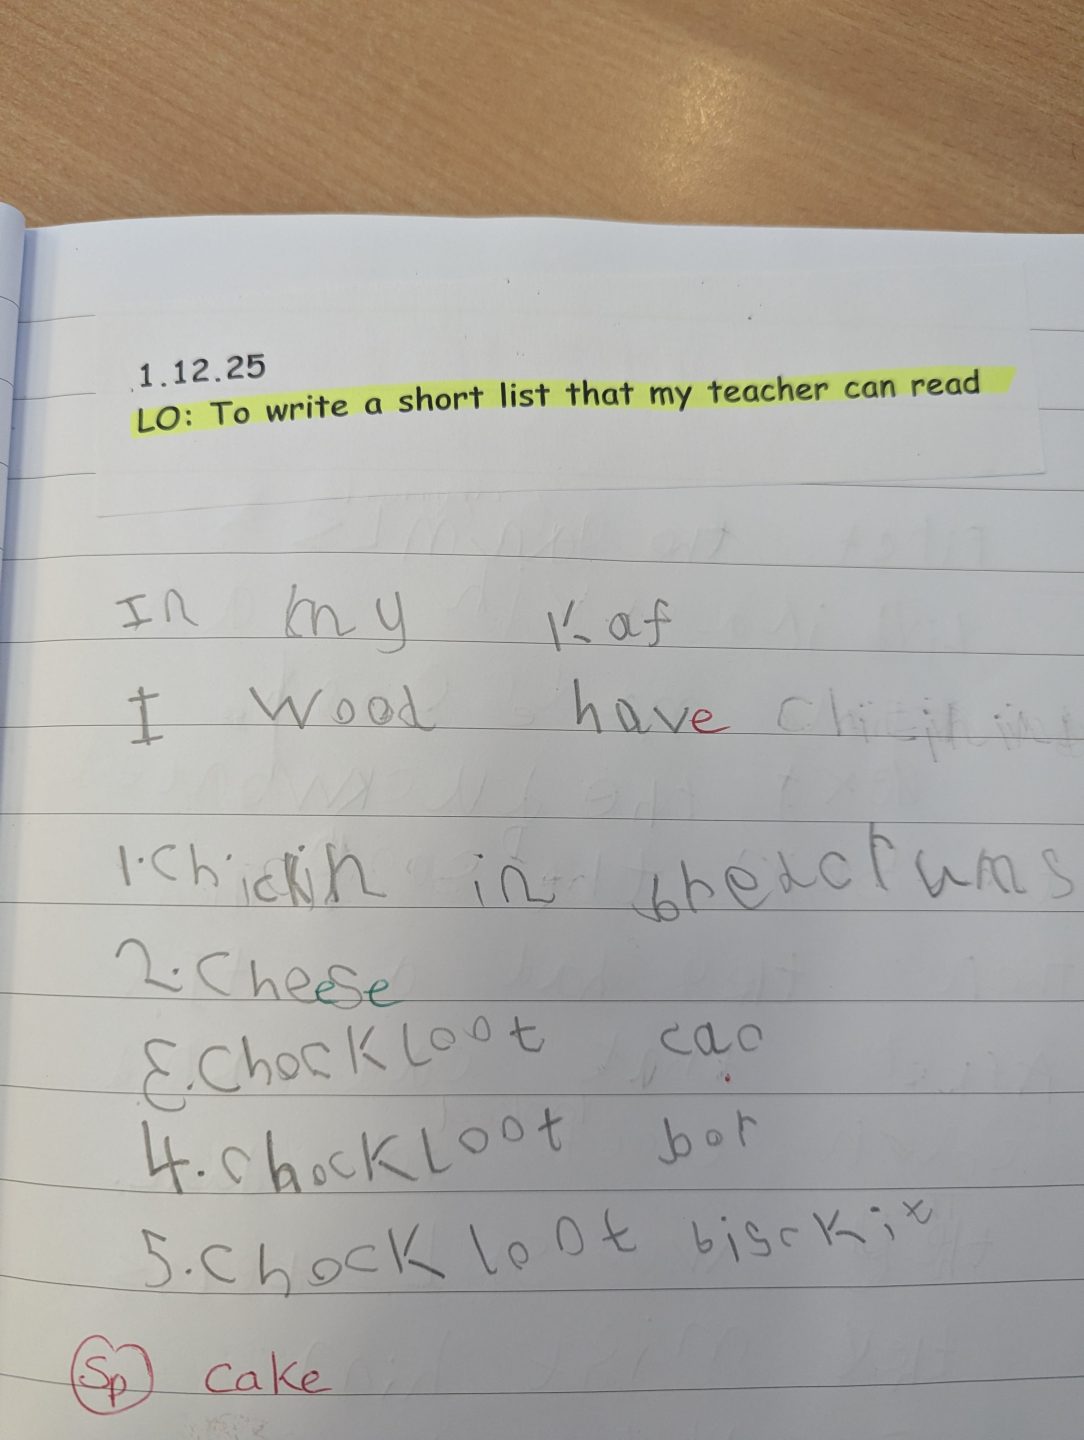 1.12.25
LO: To write a short list that my teacher can read
In my Kaf
I wood have
1. Chickin in
2. Cheese
3. Chockloot cac
4. chockloot bor
5. chockloot bisckit
Sp cake